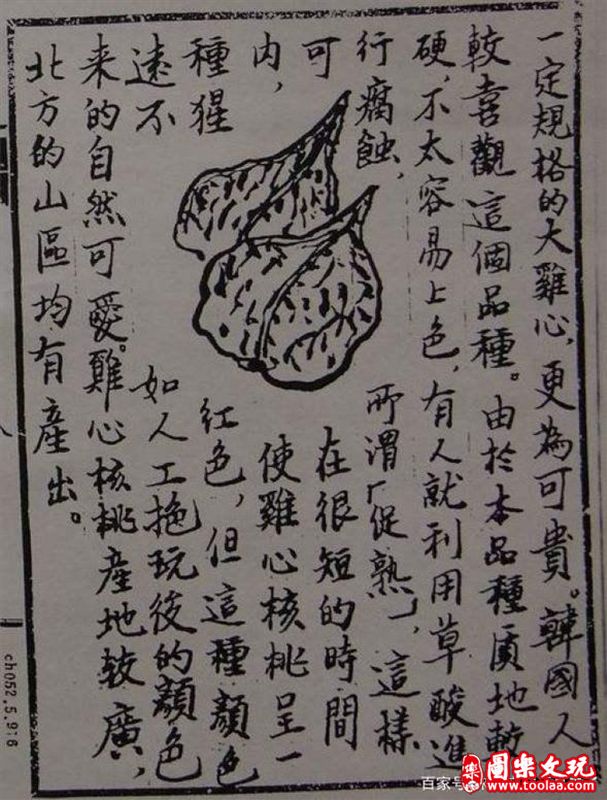 一定規格的大雞心,更為可貴。韓國人
較喜觀這個品種。由於本品種質地較
硬,不太容易上色,有人就利用草酸進
行腐蝕,所謂「促熟」,這樣
可在很短的時間
内,使雞心核桃呈一
種猩紅色,但這種顏色
遠不如人工拖玩後的顏色
来的自然可愛。雞心核桃産地較廣,
北方的山區均有産出。
ch052.5.916
百家号
圖樂文玩
www.toolaa.com